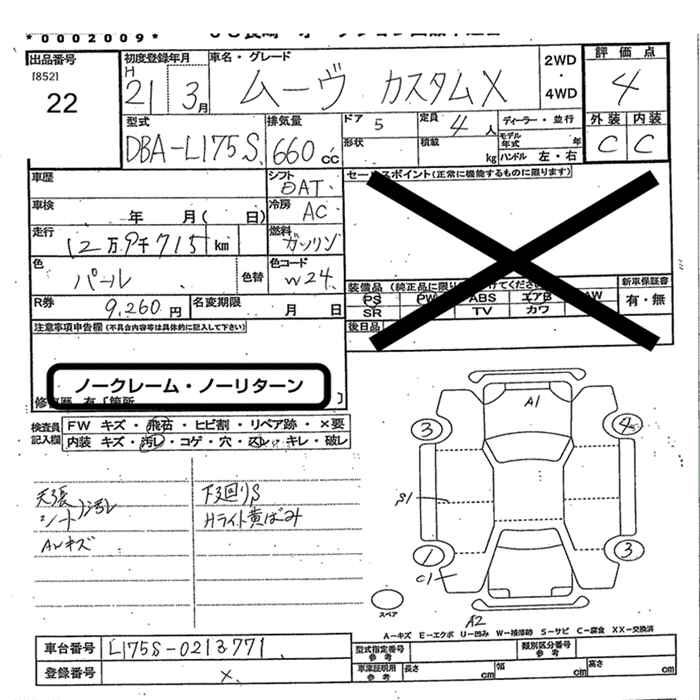 *0002009*
出品番号
[852]
22
初度登録年月
H
21 3月
車名・グレード
ムーヴ カスタムX
2WD
・
4WD
評価点
4
外装 内装
C C
型式
DBA-L175S
排気量
660cc
ドア 5
定員 4人
ディーラー・並行
形状
積載 kg
モデル年式 年
ハンドル 左・右
車歴
シフト
OAT
車検 年 月( 日)
冷房
AC
走行 12万9千715 km
燃料
ガソリン
色 パール
色替
色コード
W24
R券 9,260円
名変期限 月 日
装備品
PS PW ABS エアB AW
SR TV カワ
後日品
新車保証書
有・無
注意事項申告欄(不具合内容等は具体的に記入して下さい)
ノークレーム・ノーリターン
検査員
記入欄
FW キズ・飛石・ヒビ割・リペア跡・×要
内装 キズ・汚レ・コゲ・穴・スレ・キレ・破レ
天張
シート 汚レ
AWキズ
下廻りS
Hライト黄ばみ
A1
3 4
S1
1 3
C1
A2
スペア
A-キズ E-エクボ U-凹み W-補修跡 S-サビ C-腐食 XX-交換済
車台番号 L175S-0213771
登録番号 ×
型式指定番号
参考
類別区分番号
参考
車庫証明用
参考
長さ cm 幅 cm 高さ cm